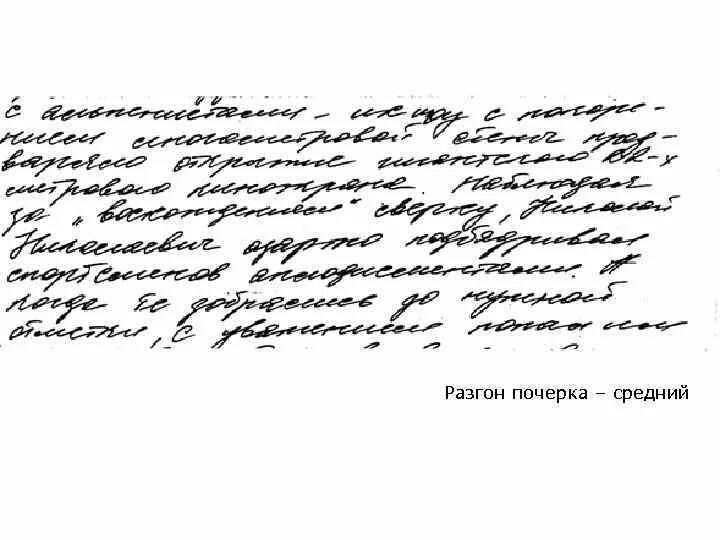 с альпинистами – их иду с покоре-
нием многометровой стены пред-
варяло открытие гигантского кв-х
метрового киноэкрана. Наблюдая
за „восхождением" сверху, Николай
Николаевич азартно подбадривал
спортсменов аплодисментами. А
когда те добрались до нужной
отметки, с уважением пожал им
Разгон почерка – средний